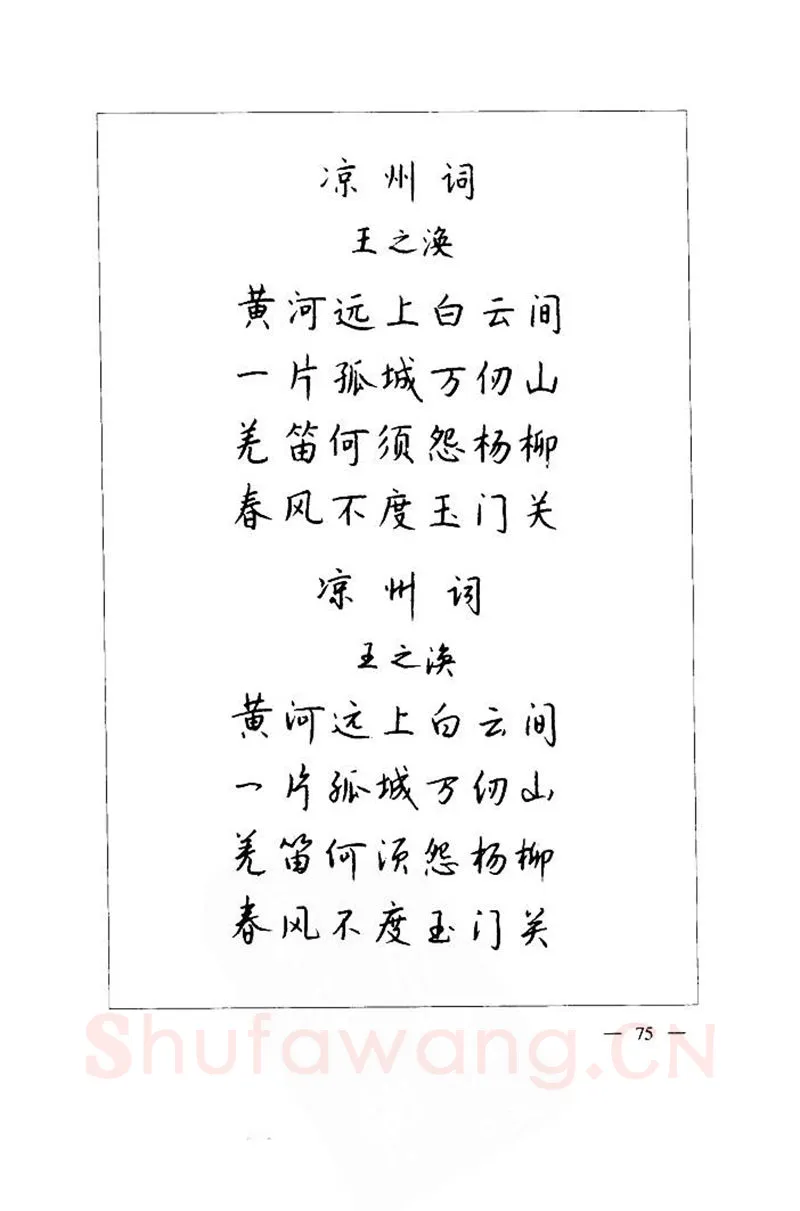 凉州词
王之涣
黄河远上白云间
一片孤城万仞山
羌笛何须怨杨柳
春风不度玉门关
凉州词
王之涣
黄河远上白云间
一片孤城万仞山
羌笛何须怨杨柳
春风不度玉门关
— 75 —
Shufawang.CN